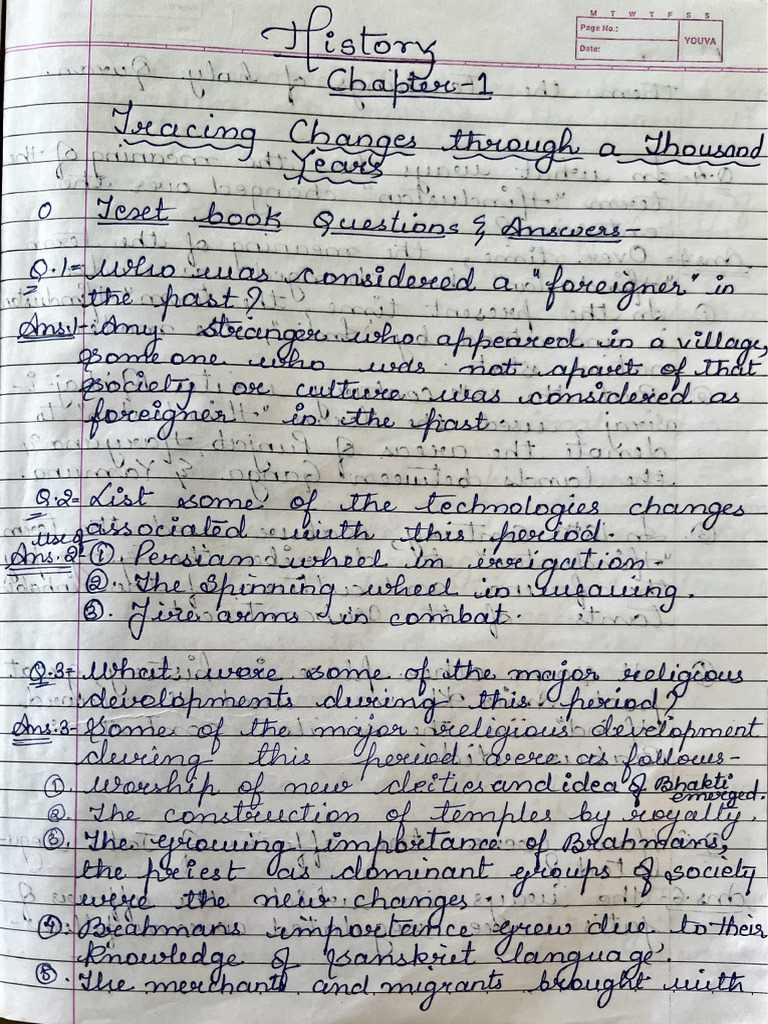 M T W T F S S
Page No.:
YOUVA
Date:
History
Chapter-1
Tracing Changes through a Thousand
Years
O Text book Questions & Answers-
Q.1= Who was considered a "foreigner" in
the past?
Ans.1- Any stranger who appeared in a village,
some one who was not apart of that
society or culture was considered as
foreigner " in the past.
Q.2= List some of the technologies changes
associated with this period.
Use of
Ans.2- ①. Persian wheel in irrigation.
②. The Spinning wheel in weaving.
③. Fire arms in combat.
Q.3= What were some of the major religious
developments during this period?
Ans.3- Some of the major religious development
during this period were as follows-
①. Worship of new deities and idea of Bhakti
emerged.
②. The construction of temples by royalty.
③. The growing importance of Brahmans,
the priest as dominant groups of society
were the new changes.
④. Brahmans importance grew due to their
knowledge of Sanskrit language.
⑤. The merchant and migrants brought with